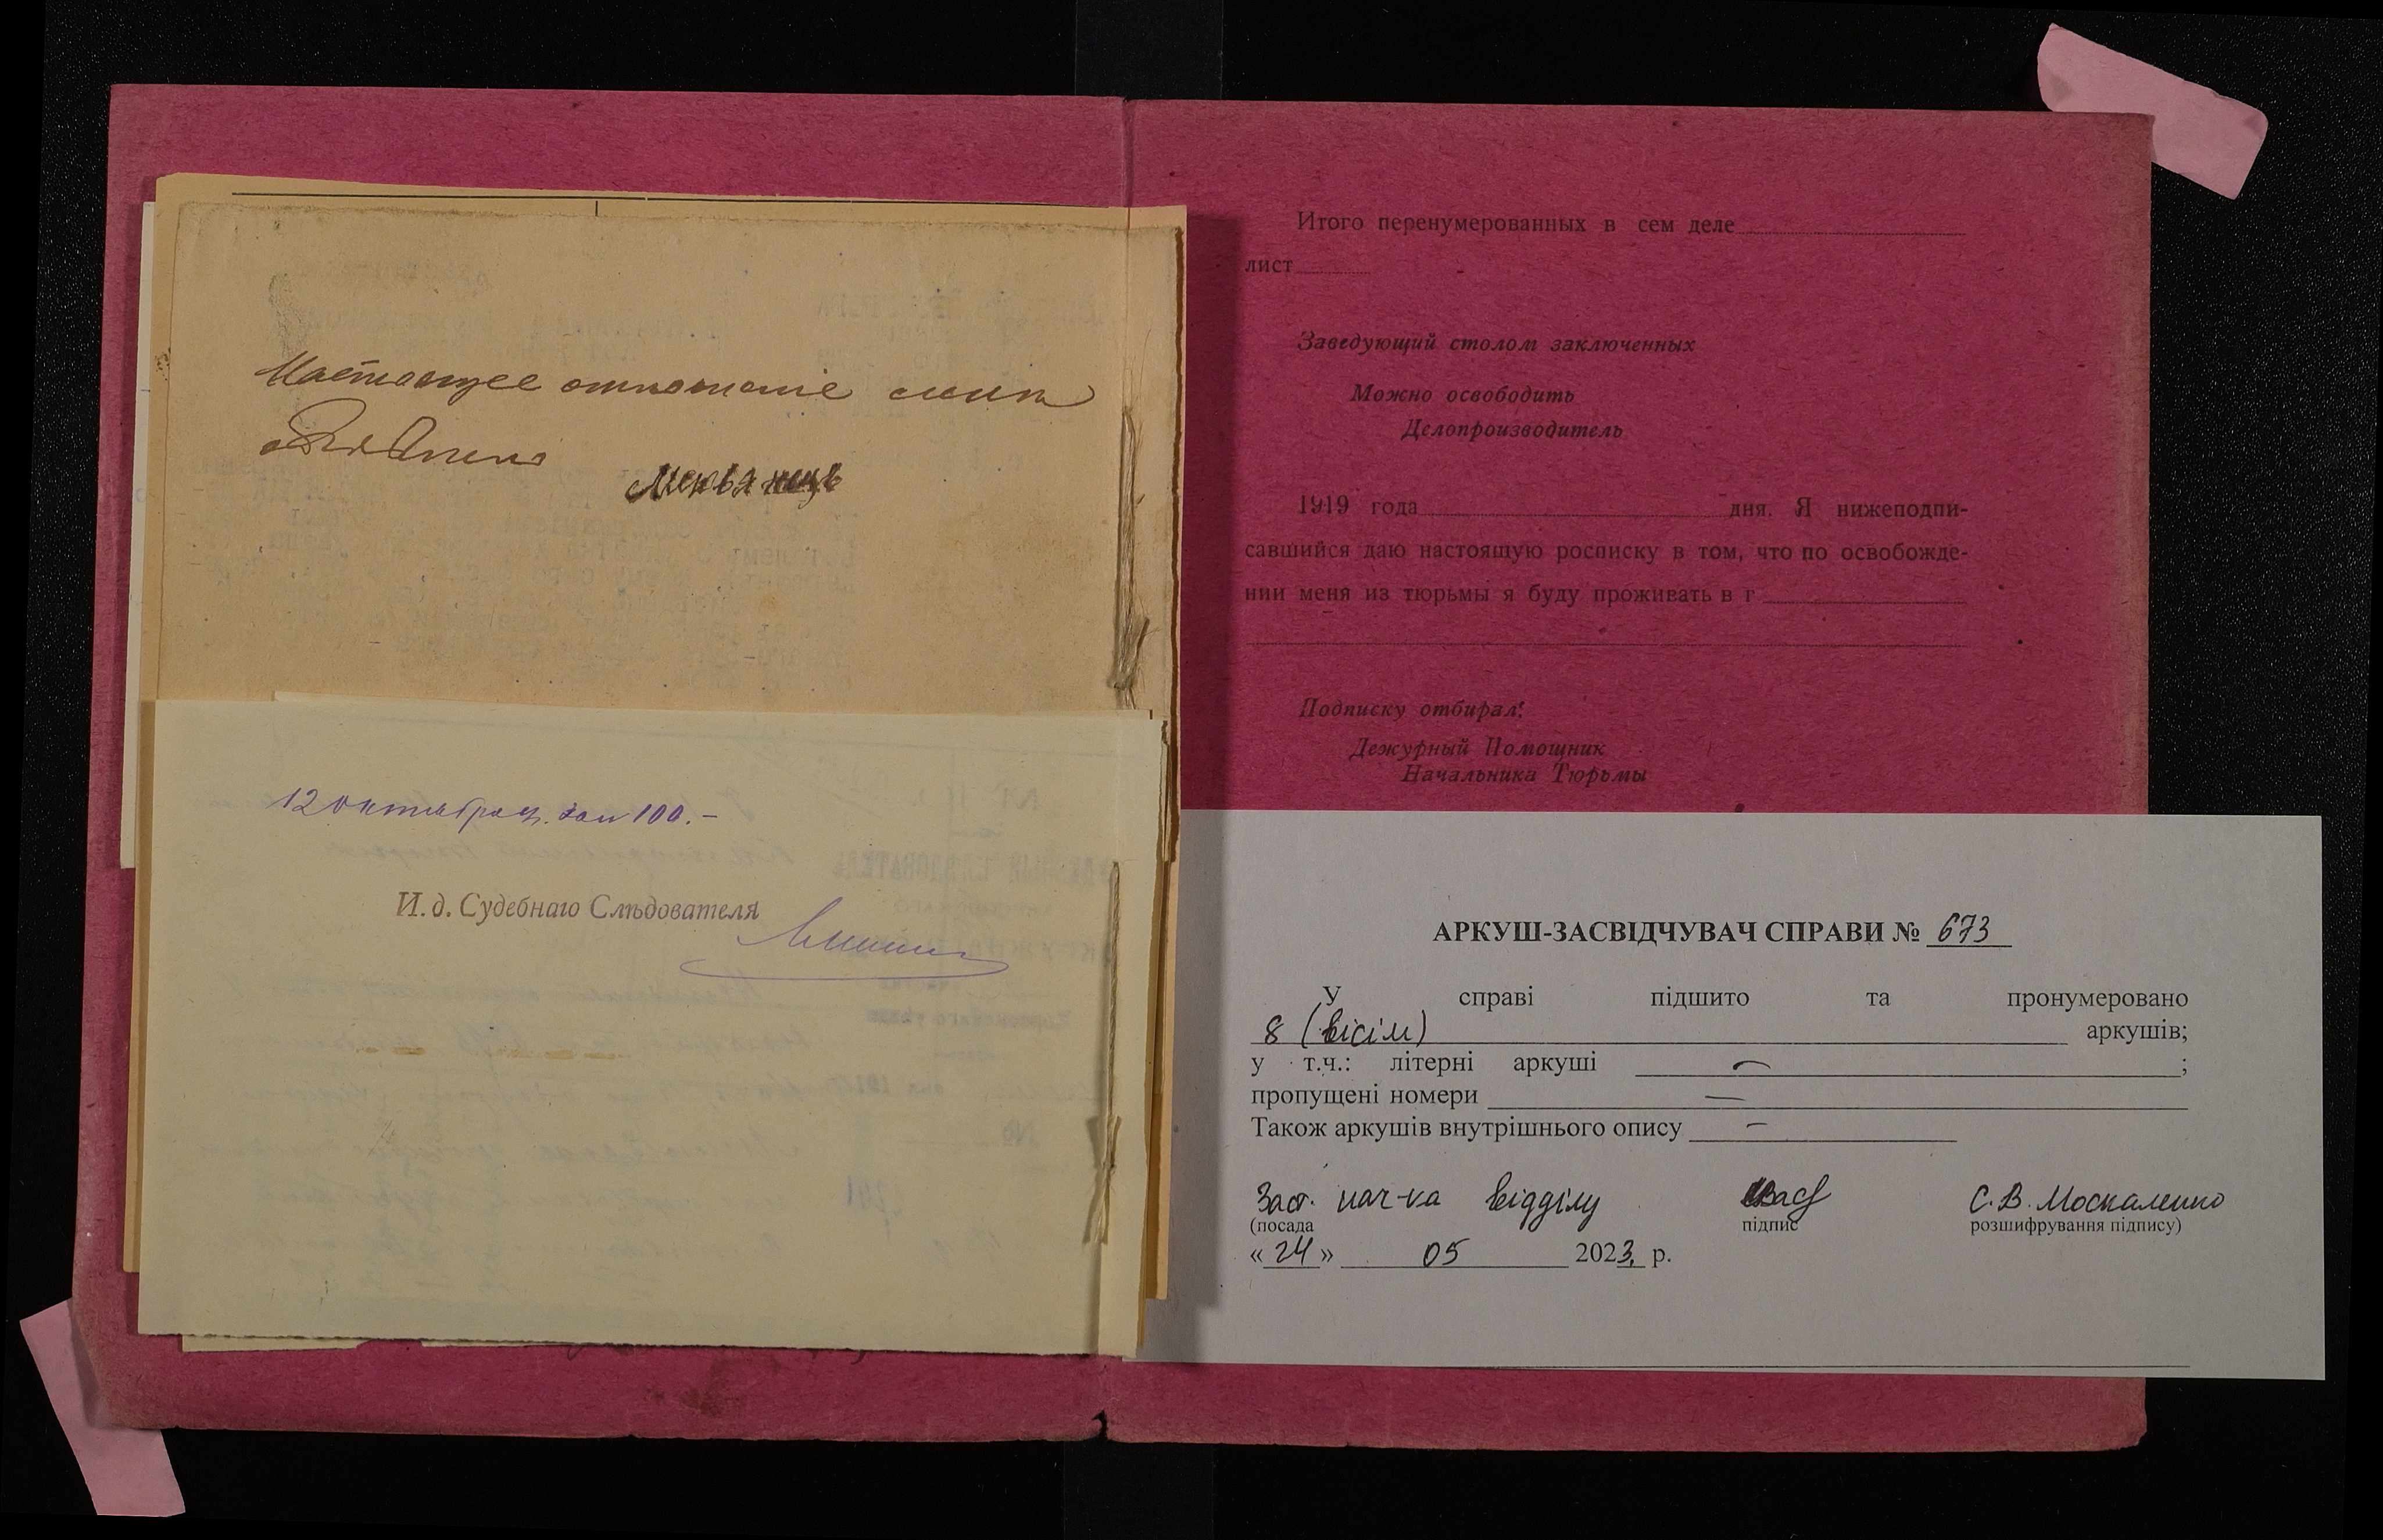 Настоящее отношение мнѣ
объявлено
12 октября
И. д. Судебнаго Слѣдователя
Итого перенумерованных в сем деле
лист
Заведующий столом заключенных
Можно освободить
Делопроизводитель
1919 года дня. Я нижеподпи-
савшийся даю настоящую росписку в том, что по освобожде-
нии меня из тюрьмы я буду проживать в г
Подписку отбирал:
Дежурный Помощник
Начальника Тюрьмы
АРКУШ-ЗАСВІДЧУВАЧ СПРАВИ № 673
У справі підшито та пронумеровано
8 (вісім) аркушів;
у т.ч.: літерні аркуші — ;
пропущені номери —
Також аркушів внутрішнього опису —
Заст. нач-ка відділу С. В. Москаленко
(посада підпис розшифрування підпису)
« 24 » 05 2023 р.